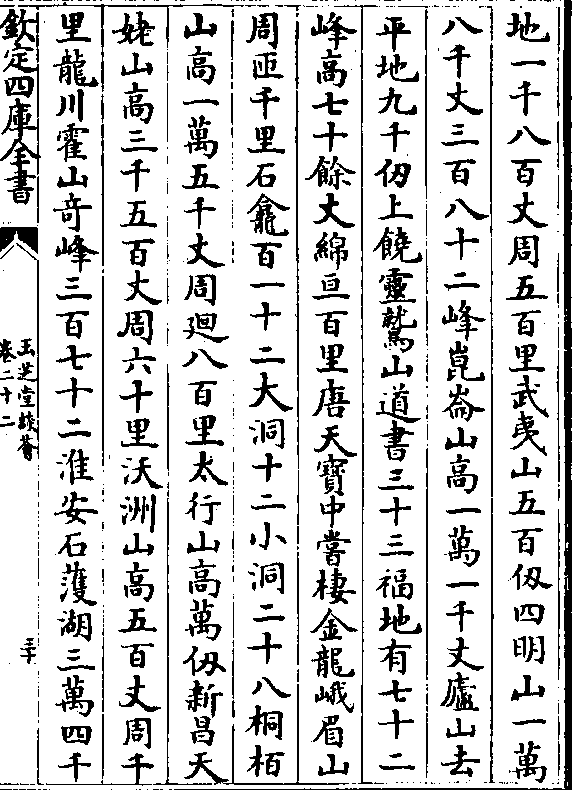 地一千八百丈周五百里武夷山五百仭四明山一萬
八千丈三百八十二峰崑崙山高一萬一千丈廬山去
平地九千仭上饒靈鷲山道書三十三福地有七十二
峰高七十餘丈綿亘百里唐天寶中嘗棲金龍峨眉山
周匝千里石龕百一十二大洞十二小洞二十八桐栢
山高一萬五千丈周廻八百里太行山高萬仭新昌天
姥山高三千五百丈周六十里沃洲山高五百丈周千
里龍川霍山竒峰三百七十二淮安石䕶湖三萬四千
欽定四庫全書
玉芝堂談薈
卷二十二
三十